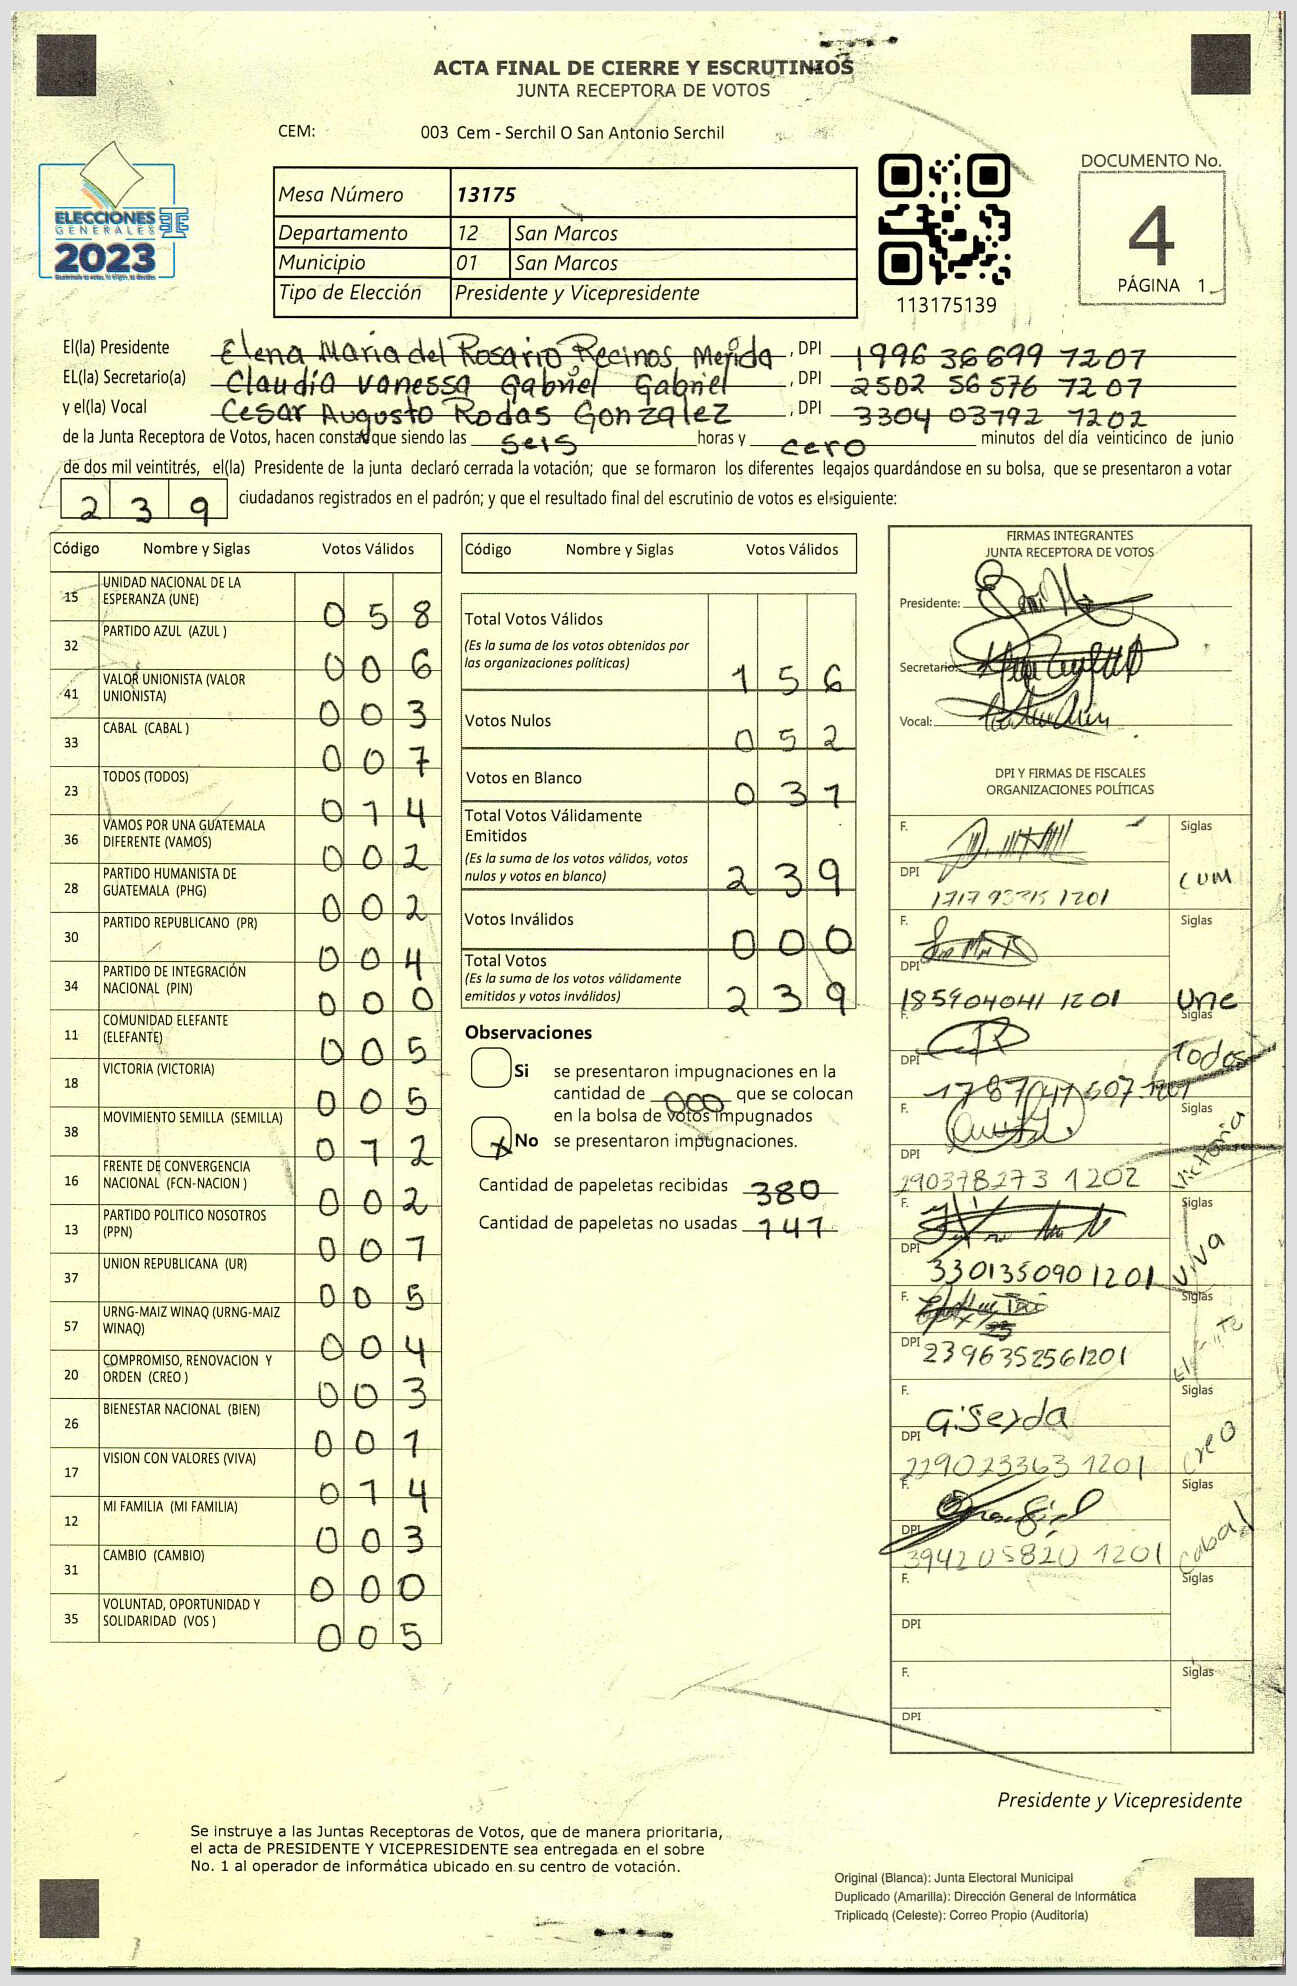 ACTA FINAL DE CIERRE Y ESCRUTINIOS
JUNTA RECEPTORA DE VOTOS
CEM: 003 Cem - Serchil O San Antonio Serchil
ELECCIONES
GENERALES
2023
Mesa Número 13175
Departamento 12 San Marcos
Municipio 01 San Marcos
Tipo de Elección Presidente y Vicepresidente
113175139
DOCUMENTO No.
4
PÁGINA 1
El(la) Presidente Elena Maria del Rosario Recinos Merida, DPI 1996 36699 1201
EL(la) Secretario(a) Claudia Vanessa Gabriel Gabriel, DPI 2502 56576 1201
y el(la) Vocal Cesar Augusto Rodas Gonzalez, DPI 3304 03792 1202
de la Junta Receptora de Votos, hacen constar que siendo las seis horas y cero minutos del día veinticinco de junio
de dos mil veintitrés, el(la) Presidente de la junta declaró cerrada la votación; que se formaron los diferentes legajos guardándose en su bolsa, que se presentaron a votar
239 ciudadanos registrados en el padrón; y que el resultado final del escrutinio de votos es el siguiente:
Código Nombre y Siglas Votos Válidos
15 UNIDAD NACIONAL DE LA ESPERANZA (UNE) 058
32 PARTIDO AZUL (AZUL ) 006
41 VALOR UNIONISTA (VALOR UNIONISTA) 003
33 CABAL (CABAL ) 007
23 TODOS (TODOS) 014
36 VAMOS POR UNA GUATEMALA DIFERENTE (VAMOS) 002
28 PARTIDO HUMANISTA DE GUATEMALA (PHG) 002
30 PARTIDO REPUBLICANO (PR) 004
34 PARTIDO DE INTEGRACIÓN NACIONAL (PIN) 000
11 COMUNIDAD ELEFANTE (ELEFANTE) 005
18 VICTORIA (VICTORIA) 005
38 MOVIMIENTO SEMILLA (SEMILLA) 012
16 FRENTE DE CONVERGENCIA NACIONAL (FCN-NACION ) 002
13 PARTIDO POLITICO NOSOTROS (PPN) 001
37 UNION REPUBLICANA (UR) 005
57 URNG-MAIZ WINAQ (URNG-MAIZ WINAQ) 004
20 COMPROMISO, RENOVACION Y ORDEN (CREO ) 003
26 BIENESTAR NACIONAL (BIEN) 001
17 VISION CON VALORES (VIVA) 014
12 MI FAMILIA (MI FAMILIA) 003
31 CAMBIO (CAMBIO) 000
35 VOLUNTAD, OPORTUNIDAD Y SOLIDARIDAD (VOS ) 005
Código Nombre y Siglas Votos Válidos
Total Votos Válidos 156
(Es la suma de los votos obtenidos por
las organizaciones políticas)
Votos Nulos 052
Votos en Blanco 031
Total Votos Válidamente
Emitidos 239
(Es la suma de los votos válidos, votos
nulos y votos en blanco)
Votos Inválidos 000
Total Votos 239
(Es la suma de los votos válidamente
emitidos y votos inválidos)
Observaciones
Si se presentaron impugnaciones en la
cantidad de 000 que se colocan
en la bolsa de votos impugnados
X No se presentaron impugnaciones.
Cantidad de papeletas recibidas 380
Cantidad de papeletas no usadas 141
FIRMAS INTEGRANTES
JUNTA RECEPTORA DE VOTOS
Presidente:
Secretario:
Vocal:
DPI Y FIRMAS DE FISCALES
ORGANIZACIONES POLÍTICAS
F. Siglas
DPI CUM
F. Siglas
DPI 185904041 1201 Une
F. Siglas
DPI Todos
F. Siglas
DPI 290378273 1202 Victoria
F. Siglas
DPI 330135090 1201 VIVA
F. Siglas
DPI 239635256 1201
F. Siglas
DPI 229023363 1201 Creo
F. Siglas
DPI 394205820 1201 Cabal
F. Siglas
DPI
F. Siglas
DPI
Presidente y Vicepresidente
Se instruye a las Juntas Receptoras de Votos, que de manera prioritaria,
el acta de PRESIDENTE Y VICEPRESIDENTE sea entregada en el sobre
No. 1 al operador de informática ubicado en su centro de votación.
Original (Blanca): Junta Electoral Municipal
Duplicado (Amarilla): Dirección General de Informática
Triplicado (Celeste): Correo Propio (Auditoría)